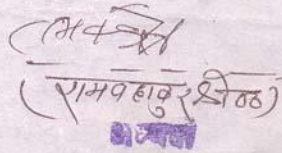 (रामबहादुर श्रेष्ठ)
अध्यक्ष